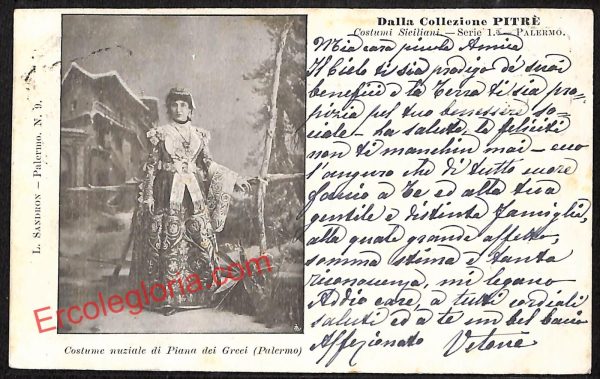 Dalla Collezione PITRÈ
Costumi Siciliani. — Serie 1.ª — PALERMO.
L. SANDRON — Palermo. N. 9.
Mia cara piccola Amica
Il Cielo ti sia prodigo de' suoi
benefici e la Terra ti sia pro-
pizia pel tuo benessere so-
ciale - La salute, la felicità
non ti manchin mai - ecco
l'augurio che di tutto cuore
faccio a Te ed alla tua
gentile e distinta famiglia,
alla quale grande affetto,
somma stima e tanta
riconoscenza, mi legano
Addio care, a tutti cordiali
saluti ed a te un bel bacio
Affezionato
Costume nuziale di Piana dei Greci (Palermo)
Ercolegloria.com